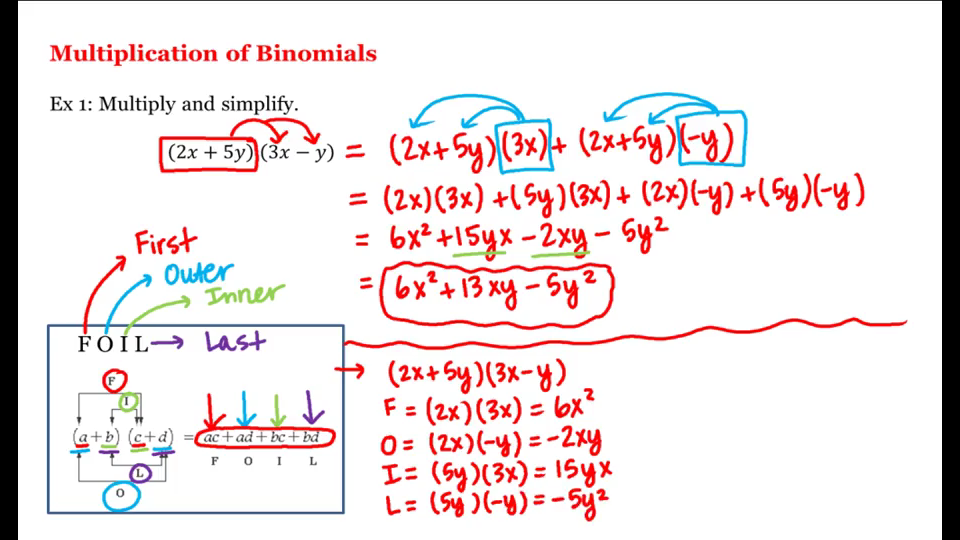 Multiplication of Binomials
Ex 1: Multiply and simplify.
(2x + 5y)(3x − y) = (2x+5y)(3x) + (2x+5y)(-y)
= (2x)(3x) + (5y)(3x) + (2x)(-y) + (5y)(-y)
= 6x² + 15yx - 2xy - 5y²
= 6x² + 13xy - 5y²
First
Outer
Inner
F O I L → Last
F
I
(a + b) (c + d) = ac + ad + bc + bd
F O I L
L
O
→ (2x+5y)(3x-y)
F = (2x)(3x) = 6x²
O = (2x)(-y) = -2xy
I = (5y)(3x) = 15yx
L = (5y)(-y) = -5y²